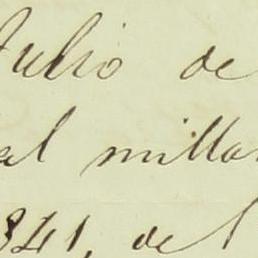 Julio de
al millar
841, del